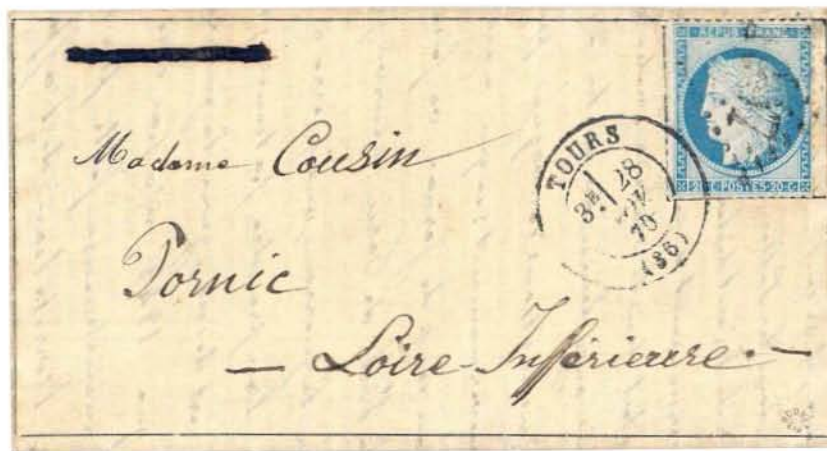 REPUB FRANC
20 C POSTES 20 C
Madame Cousin
TOURS
3E 28
NOV
70
(36)
Pornic
Loire-Inférieure.